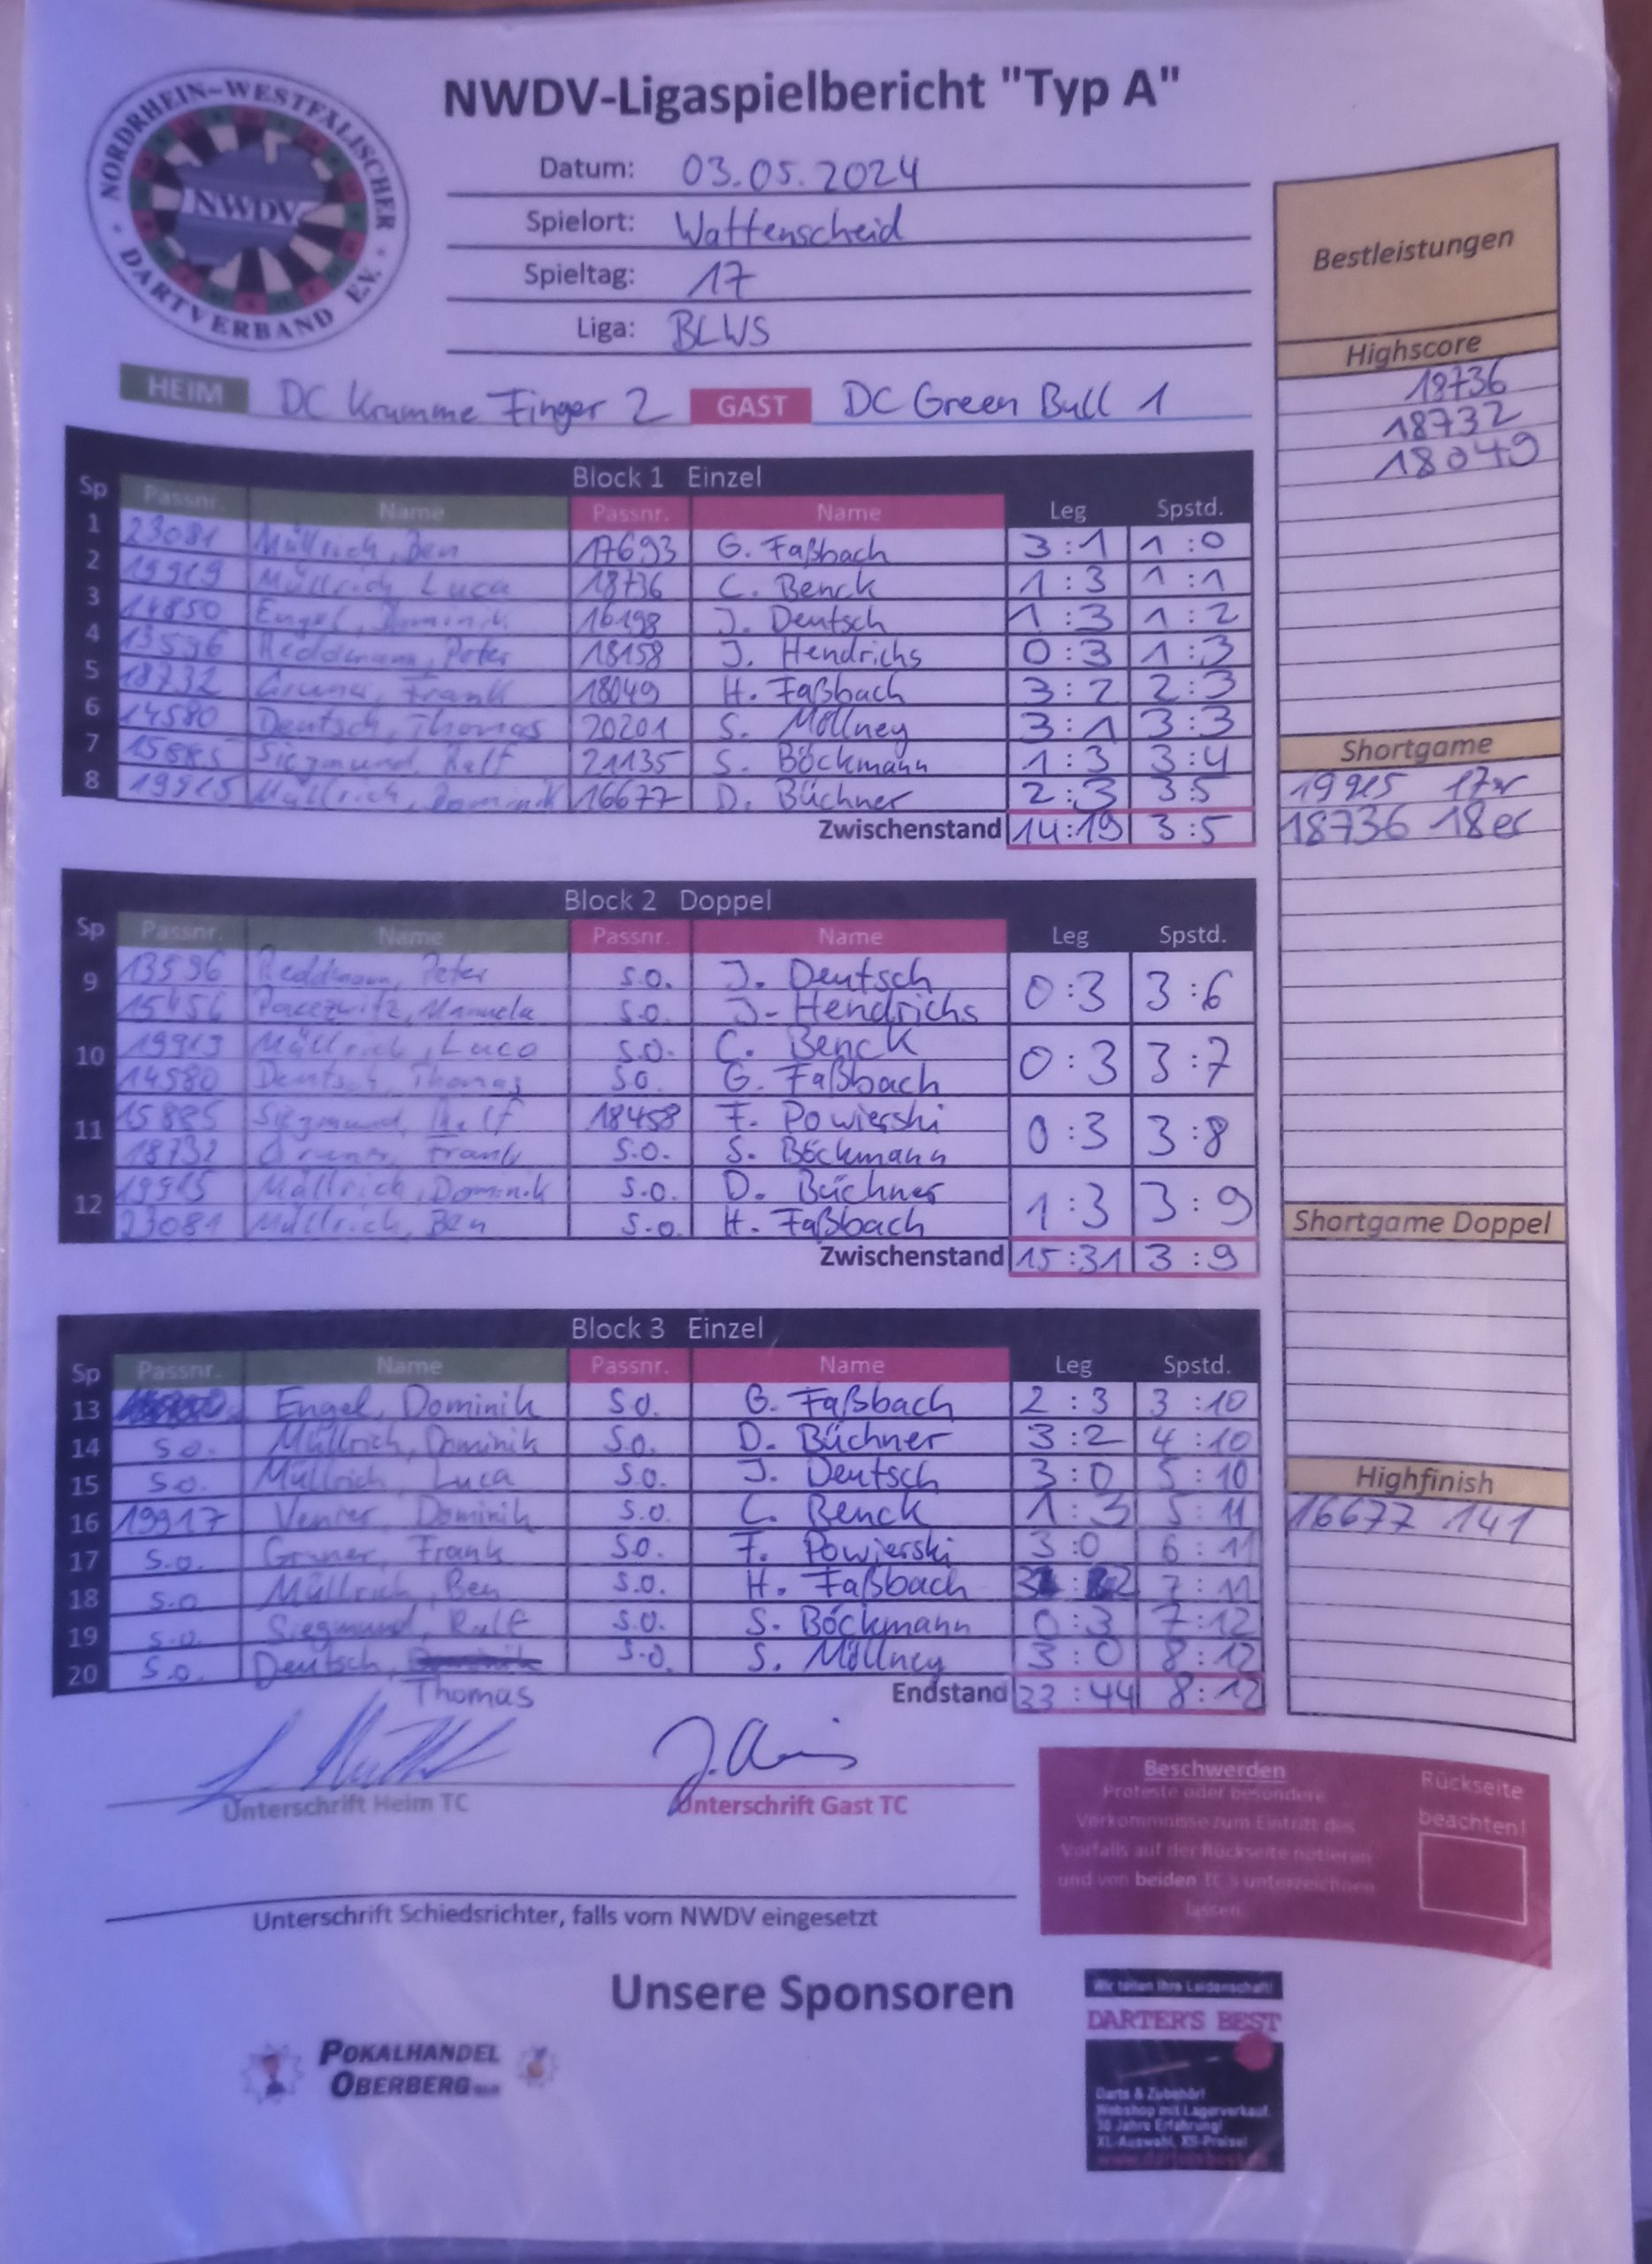 NWDV-Ligaspielbericht "Typ A"
NORDRHEIN-WESTFÄLISCHER
NWDV
DARTVERBAND E.V.
Datum: 03.05.2024
Spielort: Wattenscheid
Spieltag: 17
Liga: BLWS
HEIM DC Krumme Finger 2 GAST DC Green Bull 1
Block 1 Einzel
Sp Passnr. Name Passnr. Name Leg Spstd.
1 23081 Müllrich, Ben 17693 G. Faßbach 3:1 1:0
2 19919 Müllrich, Luca 18736 C. Benck 1:3 1:1
3 14850 Engel, Dominik 16198 J. Deutsch 1:3 1:2
4 13596 Reddmann, Peter 18158 J. Hendrichs 0:3 1:3
5 18732 Gruner, Frank 18049 H. Faßbach 3:2 2:3
6 14580 Deutsch, Thomas 20201 S. Möllney 3:1 3:3
7 15885 Siegmund, Ralf 21135 S. Böckmann 1:3 3:4
8 19915 Müllrich, Dominik 16677 D. Büchner 2:3 3:5
Zwischenstand 14:19 3:5
Block 2 Doppel
Sp Passnr. Name Passnr. Name Leg Spstd.
9 13596 Reddmann, Peter s.o. J. Deutsch 0:3 3:6
Manuela s.o. J. Hendrichs
10 19919 Müllrich, Luca s.o. C. Benck 0:3 3:7
14580 Deutsch, Thomas s.o. G. Faßbach
11 15885 Siegmund, Ralf 18458 F. Powierski 0:3 3:8
18732 Gruner, Frank s.o. S. Böckmann
12 19915 Müllrich, Dominik s.o. D. Büchner 1:3 3:9
23081 Müllrich, Ben s.o. H. Faßbach
Zwischenstand 15:31 3:9
Block 3 Einzel
Sp Passnr. Name Passnr. Name Leg Spstd.
13 Engel, Dominik s.o. G. Faßbach 2:3 3:10
14 s.o. Müllrich, Dominik s.o. D. Büchner 3:2 4:10
15 s.o. Müllrich, Luca s.o. J. Deutsch 3:0 5:10
16 19917 Venner, Dominik s.o. C. Benck 1:3 5:11
17 s.o. Gruner, Frank s.o. F. Powierski 3:0 6:11
18 s.o. Müllrich, Ben s.o. H. Faßbach 3:2 7:11
19 s.o. Siegmund, Ralf s.o. S. Böckmann 0:3 7:12
20 s.o. Deutsch, s.o. S. Möllney 3:0 8:12
Thomas
Endstand 33:44 8:12
Unterschrift Heim TC
Unterschrift Gast TC
Unterschrift Schiedsrichter, falls vom NWDV eingesetzt
Bestleistungen
Highscore
18736
18732
18049
Shortgame
19915 17er
18736 18er
Shortgame Doppel
Highfinish
16677 141
Beschwerden
Proteste oder besondere
Vorkommnisse zum Eintritt des
Vorfalls auf der Rückseite notieren
und von beiden TC's unterzeichnen
lassen.
Rückseite
beachten!
Unsere Sponsoren
POKALHANDEL
OBERBERG
Wir teilen Ihre Leidenschaft!
DARTER'S BEST
Darts & Zubehör!
Webshop mit Lagerverkauf
30 Jahre Erfahrung!
XL-Auswahl, XS-Preise!